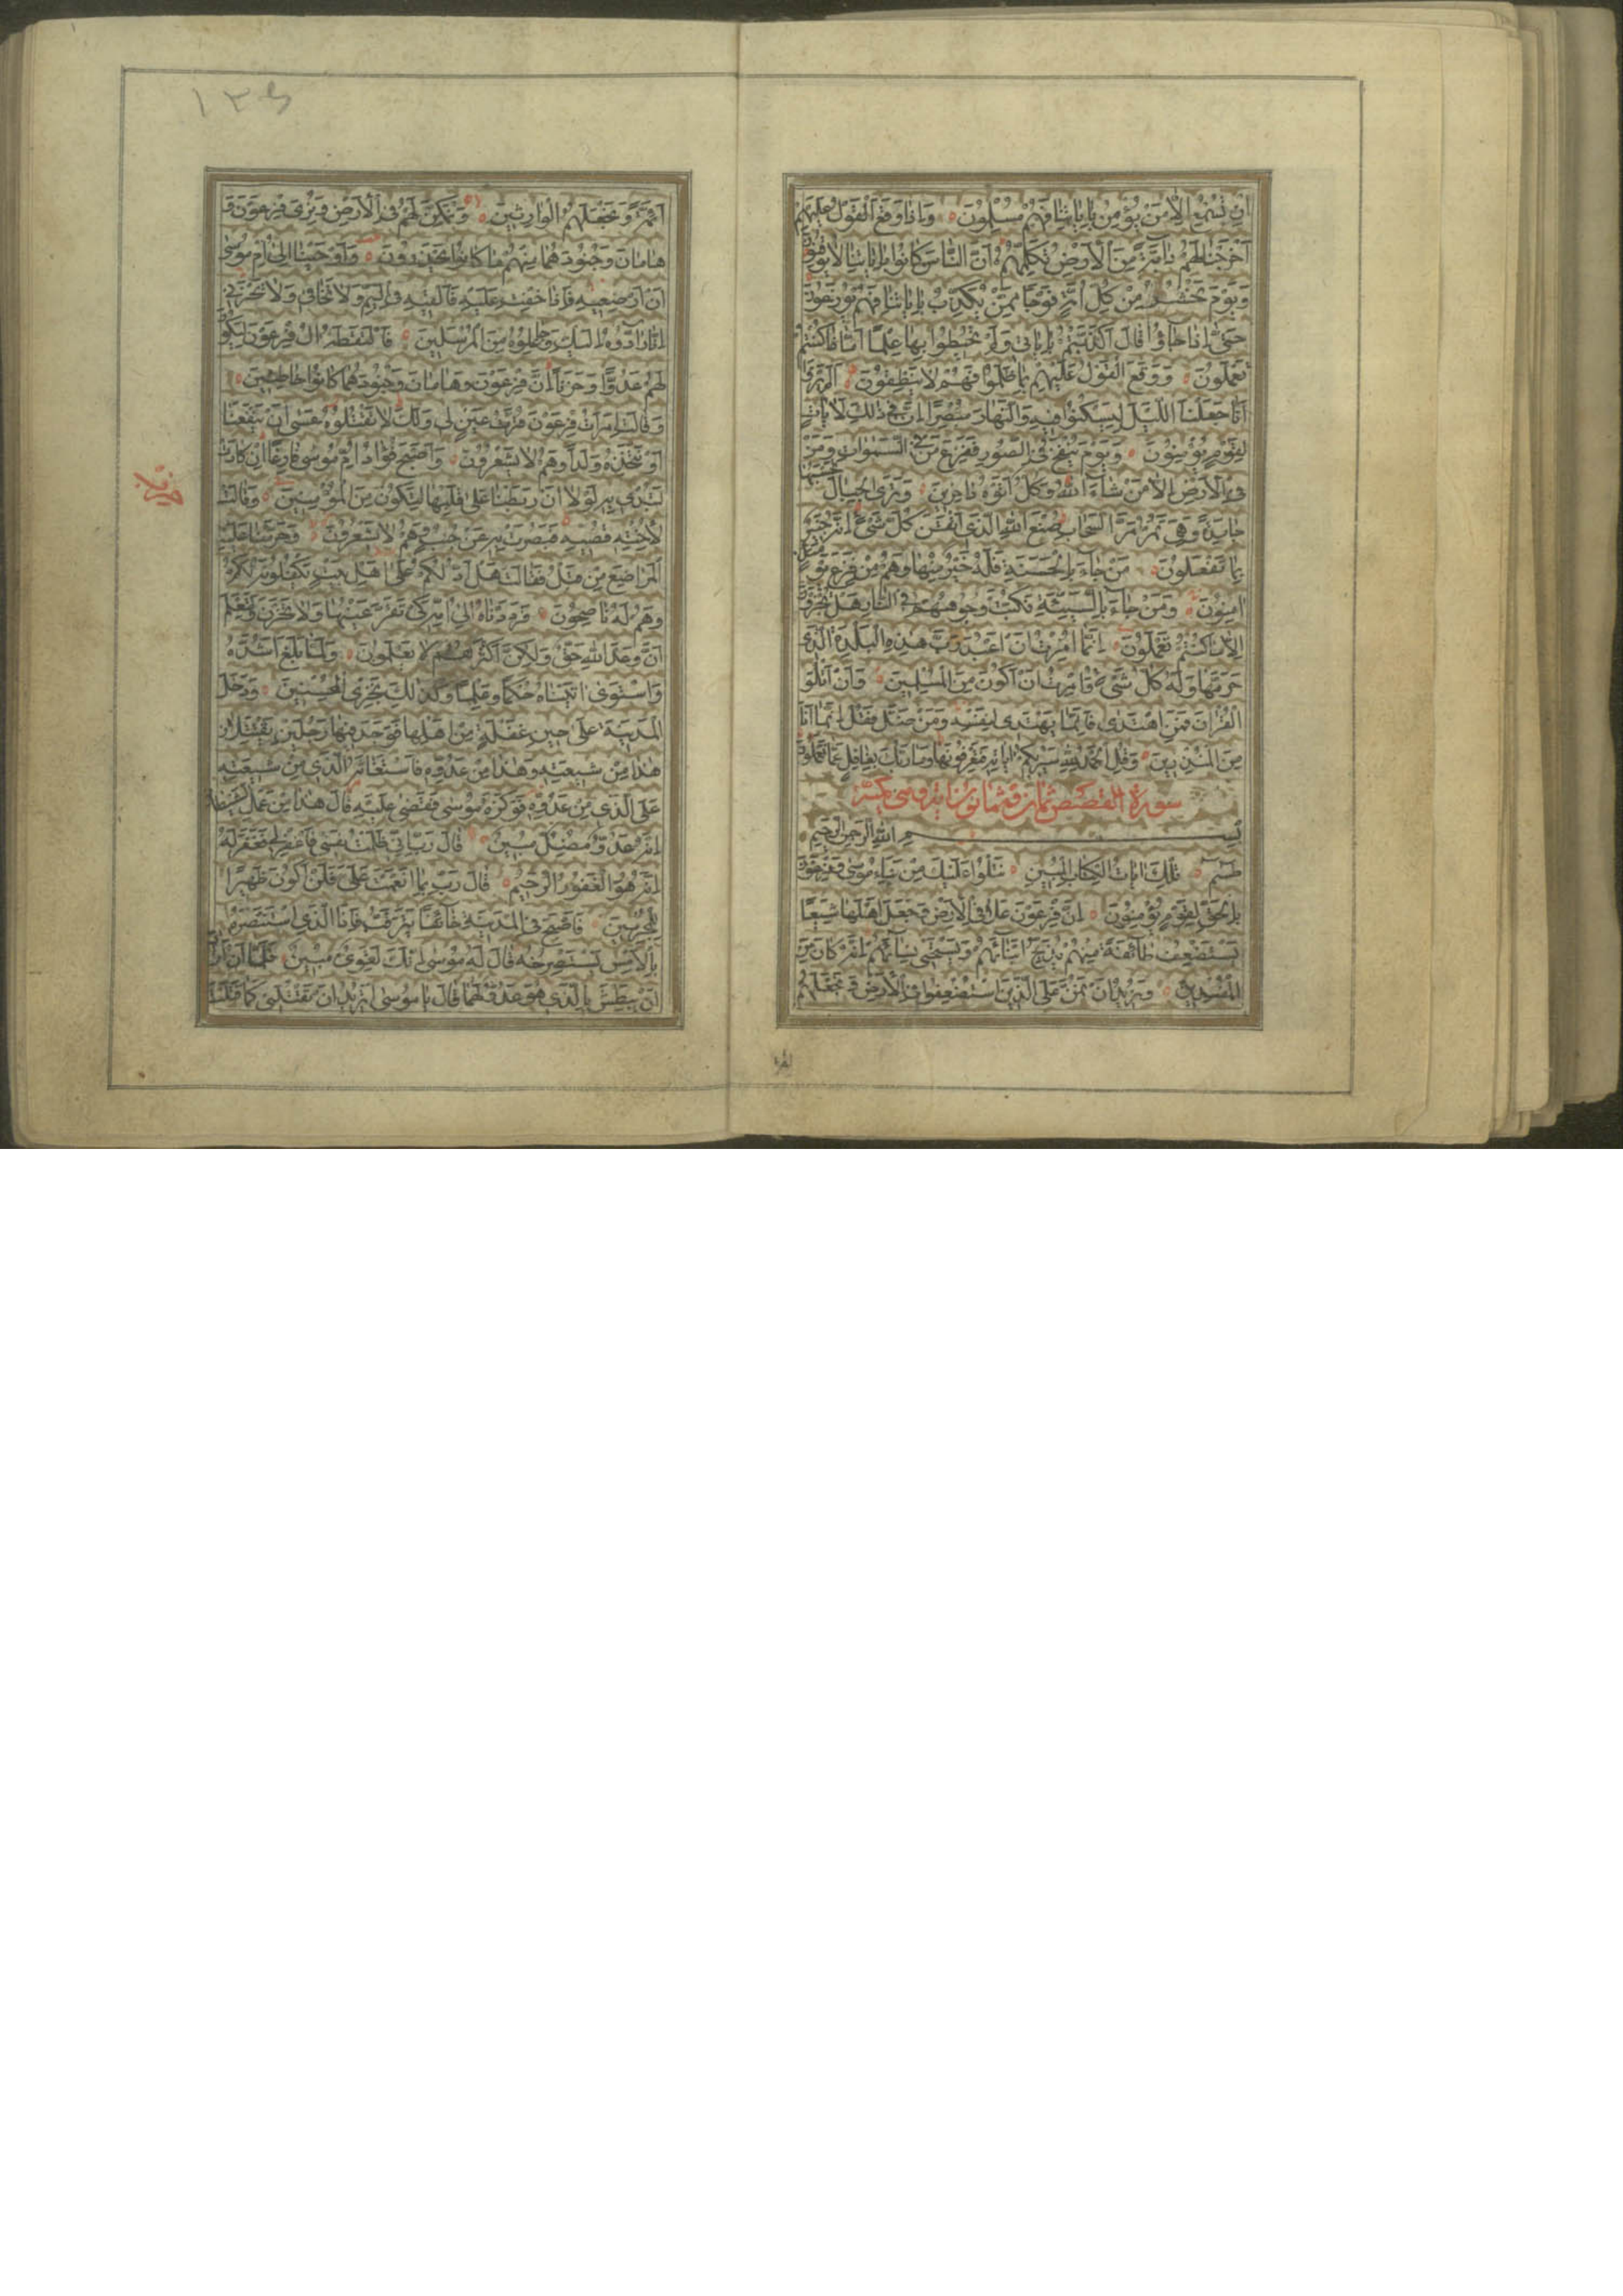 اِنْ تُسْمِعُ اِلّٰا مَنْ يُؤْمِنُ بِاٰيٰاتِنٰا فَهُمْ مُسْلِمُونَ وَاِذٰا وَقَعَ الْقَوْلُ عَلَيْهِمْ
اَخْرَجْنٰا لَهُمْ دٰابَّةً مِنَ الْاَرْضِ تُكَلِّمُهُمْ اَنَّ النّٰاسَ كٰانُوا بِاٰيٰاتِنٰا لٰا يُوقِنُونَ
وَيَوْمَ نَحْشُرُ مِنْ كُلِّ اُمَّةٍ فَوْجًا مِمَّنْ يُكَذِّبُ بِاٰيٰاتِنٰا فَهُمْ يُوزَعُونَ
حَتّٰى اِذٰا جٰاؤُا قٰالَ اَكَذَّبْتُمْ بِاٰيٰاتِى وَلَمْ تُحِيطُوا بِهٰا عِلْمًا اَمّٰا ذٰا كُنْتُمْ
تَعْمَلُونَ وَوَقَعَ الْقَوْلُ عَلَيْهِمْ بِمٰا ظَلَمُوا فَهُمْ لٰا يَنْطِقُونَ اَلَمْ يَرَوْا
اَنّٰا جَعَلْنَا اللَّيْلَ لِيَسْكُنُوا فِيهِ وَالنَّهٰارَ مُبْصِرًا اِنَّ فِى ذٰلِكَ لَاٰيٰاتٍ
لِقَوْمٍ يُؤْمِنُونَ وَيَوْمَ يُنْفَخُ فِى الصُّورِ فَفَزِعَ مَنْ فِى السَّمٰوٰاتِ وَمَنْ
فِى الْاَرْضِ اِلّٰا مَنْ شٰاءَ اللّٰهُ وَكُلٌّ اَتَوْهُ دٰاخِرِينَ وَتَرَى الْجِبٰالَ تَحْسَبُهٰا
جٰامِدَةً وَهِىَ تَمُرُّ مَرَّ السَّحٰابِ صُنْعَ اللّٰهِ الَّذِى اَتْقَنَ كُلَّ شَىْءٍ اِنَّهُ خَبِيرٌ
بِمٰا تَفْعَلُونَ مَنْ جٰاءَ بِالْحَسَنَةِ فَلَهُ خَيْرٌ مِنْهٰا وَهُمْ مِنْ فَزَعٍ يَوْمَئِذٍ
اٰمِنُونَ وَمَنْ جٰاءَ بِالسَّيِّئَةِ فَكُبَّتْ وُجُوهُهُمْ فِى النّٰارِ هَلْ تُجْزَوْنَ
اِلّٰا مٰا كُنْتُمْ تَعْمَلُونَ اِنَّمٰا اُمِرْتُ اَنْ اَعْبُدَ رَبَّ هٰذِهِ الْبَلْدَةِ الَّذِى
حَرَّمَهٰا وَلَهُ كُلُّ شَىْءٍ وَاُمِرْتُ اَنْ اَكُونَ مِنَ الْمُسْلِمِينَ وَاَنْ اَتْلُوَا
الْقُرْاٰنَ فَمَنِ اهْتَدٰى فَاِنَّمٰا يَهْتَدِى لِنَفْسِهِ وَمَنْ ضَلَّ فَقُلْ اِنَّمٰا اَنَا
مِنَ الْمُنْذِرِينَ وَقُلِ الْحَمْدُ لِلّٰهِ سَيُرِيكُمْ اٰيٰاتِهِ فَتَعْرِفُونَهٰا وَمٰا رَبُّكَ بِغٰافِلٍ عَمّٰا تَعْمَلُونَ
سورة القصص ثمان وثمانون اية وهى مكية
بِسْمِ اللّٰهِ الرَّحْمٰنِ الرَّحِيمِ
طٰسٓمٓ تِلْكَ اٰيٰاتُ الْكِتٰابِ الْمُبِينِ نَتْلُوا عَلَيْكَ مِنْ نَبَأِ مُوسٰى وَفِرْعَوْنَ
بِالْحَقِّ لِقَوْمٍ يُؤْمِنُونَ اِنَّ فِرْعَوْنَ عَلٰا فِى الْاَرْضِ وَجَعَلَ اَهْلَهٰا شِيَعًا
يَسْتَضْعِفُ طٰائِفَةً مِنْهُمْ يُذَبِّحُ اَبْنٰاءَهُمْ وَيَسْتَحْيِى نِسٰاءَهُمْ اِنَّهُ كٰانَ مِنَ
الْمُفْسِدِينَ وَنُرِيدُ اَنْ نَمُنَّ عَلَى الَّذِينَ اسْتُضْعِفُوا فِى الْاَرْضِ وَنَجْعَلَهُمْ
اَئِمَّةً وَنَجْعَلَهُمُ الْوٰارِثِينَ وَنُمَكِّنَ لَهُمْ فِى الْاَرْضِ وَنُرِىَ فِرْعَوْنَ وَ
هٰامٰانَ وَجُنُودَهُمٰا مِنْهُمْ مٰا كٰانُوا يَحْذَرُونَ وَاَوْحَيْنٰا اِلٰى اُمِّ مُوسٰى
اَنْ اَرْضِعِيهِ فَاِذٰا خِفْتِ عَلَيْهِ فَاَلْقِيهِ فِى الْيَمِّ وَلٰا تَخٰافِى وَلٰا تَحْزَنِى
اِنّٰا رٰادُّوهُ اِلَيْكِ وَجٰاعِلُوهُ مِنَ الْمُرْسَلِينَ فَالْتَقَطَهُ اٰلُ فِرْعَوْنَ لِيَكُونَ
لَهُمْ عَدُوًّا وَحَزَنًا اِنَّ فِرْعَوْنَ وَهٰامٰانَ وَجُنُودَهُمٰا كٰانُوا خٰاطِئِينَ
وَقٰالَتِ امْرَاَتُ فِرْعَوْنَ قُرَّتُ عَيْنٍ لِى وَلَكَ لٰا تَقْتُلُوهُ عَسٰى اَنْ يَنْفَعَنٰا
اَوْ نَتَّخِذَهُ وَلَدًا وَهُمْ لٰا يَشْعُرُونَ وَاَصْبَحَ فُؤٰادُ اُمِّ مُوسٰى فٰارِغًا اِنْ كٰادَتْ
لَتُبْدِى بِهِ لَوْلٰا اَنْ رَبَطْنٰا عَلٰى قَلْبِهٰا لِتَكُونَ مِنَ الْمُؤْمِنِينَ وَقٰالَتْ
لِاُخْتِهِ قُصِّيهِ فَبَصُرَتْ بِهِ عَنْ جُنُبٍ وَهُمْ لٰا يَشْعُرُونَ وَحَرَّمْنٰا عَلَيْهِ
الْمَرٰاضِعَ مِنْ قَبْلُ فَقٰالَتْ هَلْ اَدُلُّكُمْ عَلٰى اَهْلِ بَيْتٍ يَكْفُلُونَهُ لَكُمْ
وَهُمْ لَهُ نٰاصِحُونَ فَرَدَدْنٰاهُ اِلٰى اُمِّهِ كَىْ تَقَرَّ عَيْنُهٰا وَلٰا تَحْزَنَ وَلِتَعْلَمَ
اَنَّ وَعْدَ اللّٰهِ حَقٌّ وَلٰكِنَّ اَكْثَرَهُمْ لٰا يَعْلَمُونَ وَلَمّٰا بَلَغَ اَشُدَّهُ
وَاسْتَوٰى اٰتَيْنٰاهُ حُكْمًا وَعِلْمًا وَكَذٰلِكَ نَجْزِى الْمُحْسِنِينَ وَدَخَلَ
الْمَدِينَةَ عَلٰى حِينِ غَفْلَةٍ مِنْ اَهْلِهٰا فَوَجَدَ فِيهٰا رَجُلَيْنِ يَقْتَتِلٰانِ
هٰذٰا مِنْ شِيعَتِهِ وَهٰذٰا مِنْ عَدُوِّهِ فَاسْتَغٰاثَهُ الَّذِى مِنْ شِيعَتِهِ
عَلَى الَّذِى مِنْ عَدُوِّهِ فَوَكَزَهُ مُوسٰى فَقَضٰى عَلَيْهِ قٰالَ هٰذٰا مِنْ عَمَلِ الشَّيْطٰانِ
اِنَّهُ عَدُوٌّ مُضِلٌّ مُبِينٌ قٰالَ رَبِّ اِنِّى ظَلَمْتُ نَفْسِى فَاغْفِرْ لِى فَغَفَرَ لَهُ
اِنَّهُ هُوَ الْغَفُورُ الرَّحِيمُ قٰالَ رَبِّ بِمٰا اَنْعَمْتَ عَلَىَّ فَلَنْ اَكُونَ ظَهِيرًا
لِلْمُجْرِمِينَ فَاَصْبَحَ فِى الْمَدِينَةِ خٰائِفًا يَتَرَقَّبُ فَاِذَا الَّذِى اسْتَنْصَرَهُ
بِالْاَمْسِ يَسْتَصْرِخُهُ قٰالَ لَهُ مُوسٰى اِنَّكَ لَغَوِىٌّ مُبِينٌ فَلَمّٰا اَنْ اَرٰادَ
اَنْ يَبْطِشَ بِالَّذِى هُوَ عَدُوٌّ لَهُمٰا قٰالَ يٰا مُوسٰى اَتُرِيدُ اَنْ تَقْتُلَنِى كَمٰا قَتَلْتَ